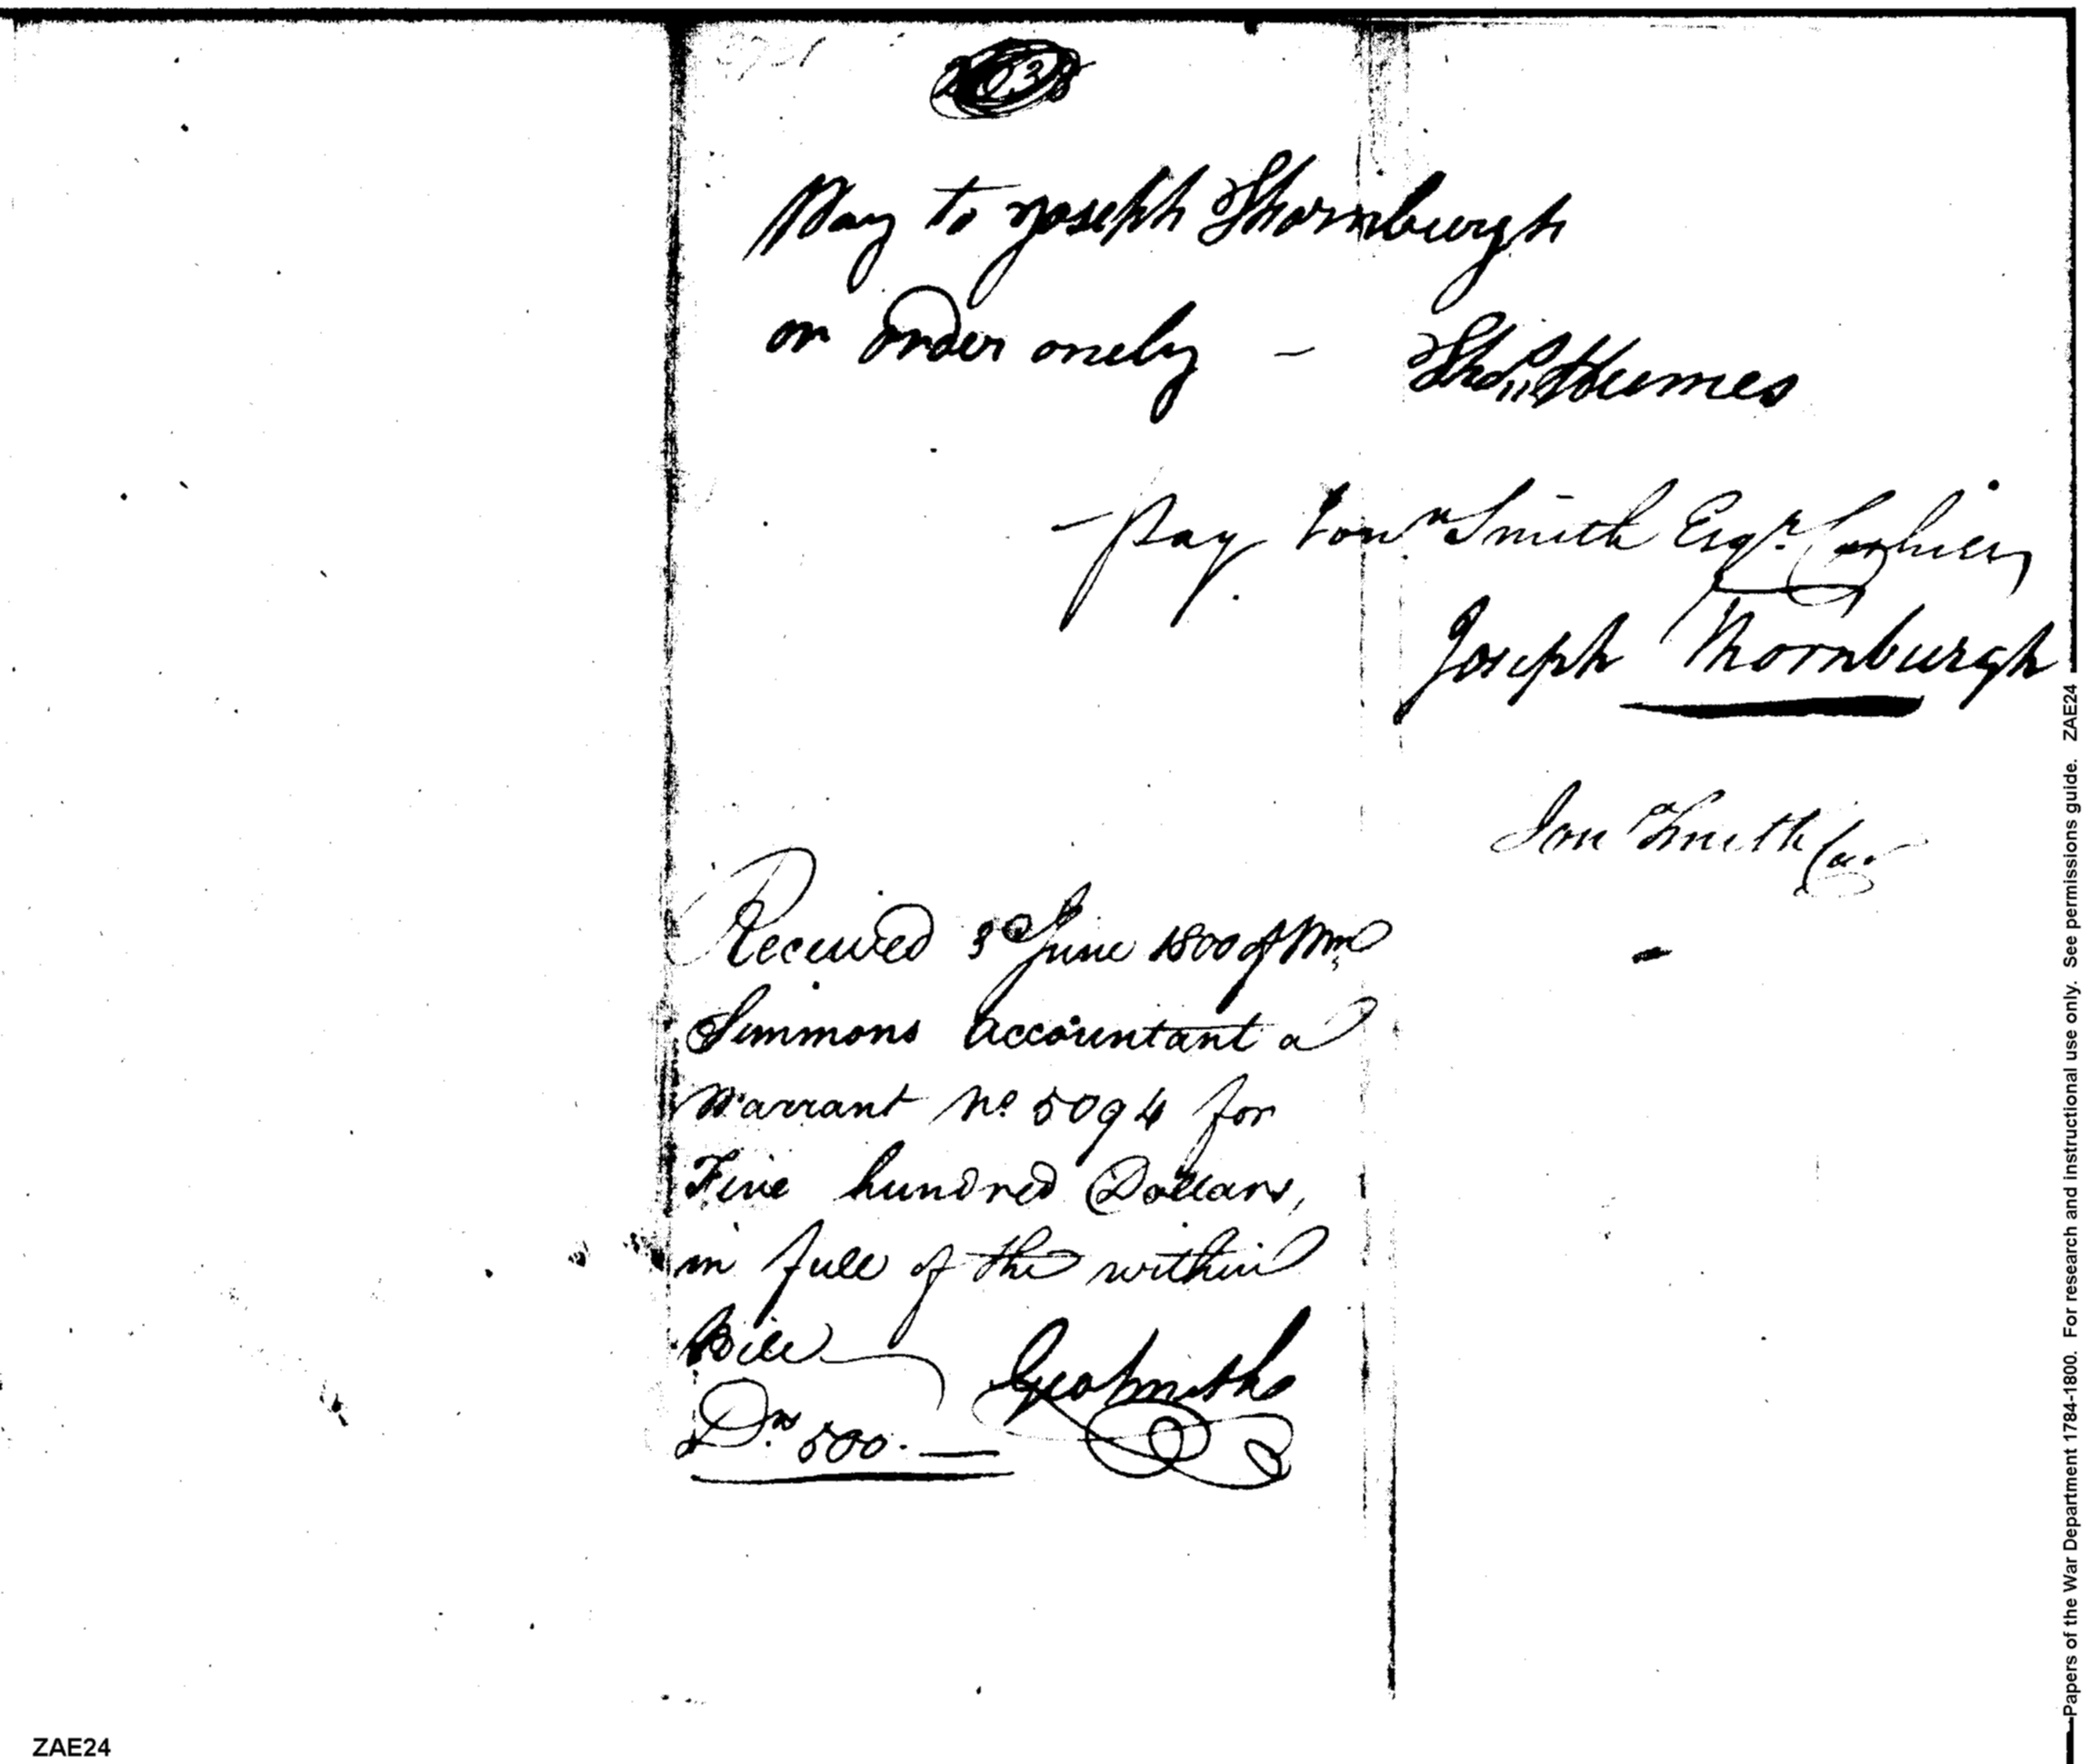 Pay to Joseph Thornburgh
or order onely - Tho.s Humes
Pay Jon.n Smith Esq.r Cashier
Joseph Thornburgh
Jon Smith Cas.
Received 3d June 1800 of Wm
Simmons Accountant a
Warrant No 5094 for
Five hundred Dollars,
in full of the within
Bill
Geo Smith
D.rs 500.—
Papers of the War Department 1784-1800. For research and instructional use only. See permissions guide. ZAE24
ZAE24